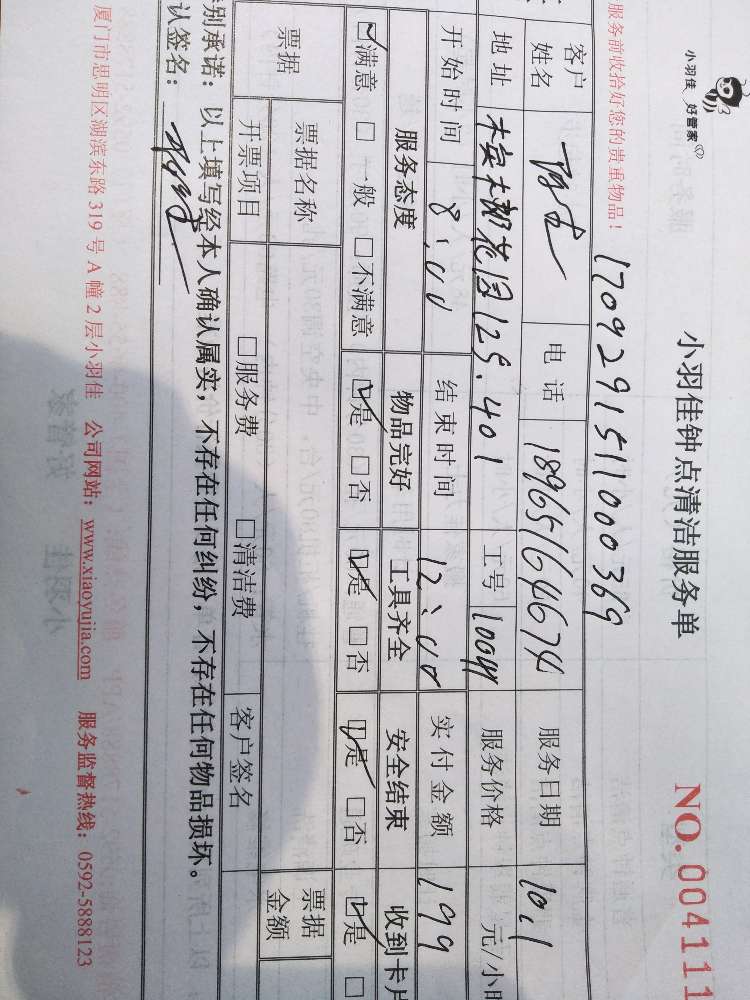 小羽佳 好管家
小羽佳钟点清洁服务单
NO. 004111
服务前收拾好您的贵重物品！
17092915110000369
客户姓名 电话 18965164674 服务日期 10.1
地址 花园125.401 工号 服务价格 元/小时
开始时间 8:00 结束时间 12:00 实付金额 199
服务态度 物品完好 工具齐全 安全结束 收到卡
☑满意 □一般 □不满意 ☑是 □否 ☑是 □否 ☑是 □否 ☑是 □
票据 票据名称 票据金额
开票项目 □服务费 □清洁费 客户签名
别承诺：以上填写经本人确认属实，不存在任何纠纷，不存在任何物品损坏。
认签名：
厦门市思明区湖滨东路319号A幢2层小羽佳 公司网站：www.xiaoyujia.com 服务监督热线：0592-5888123